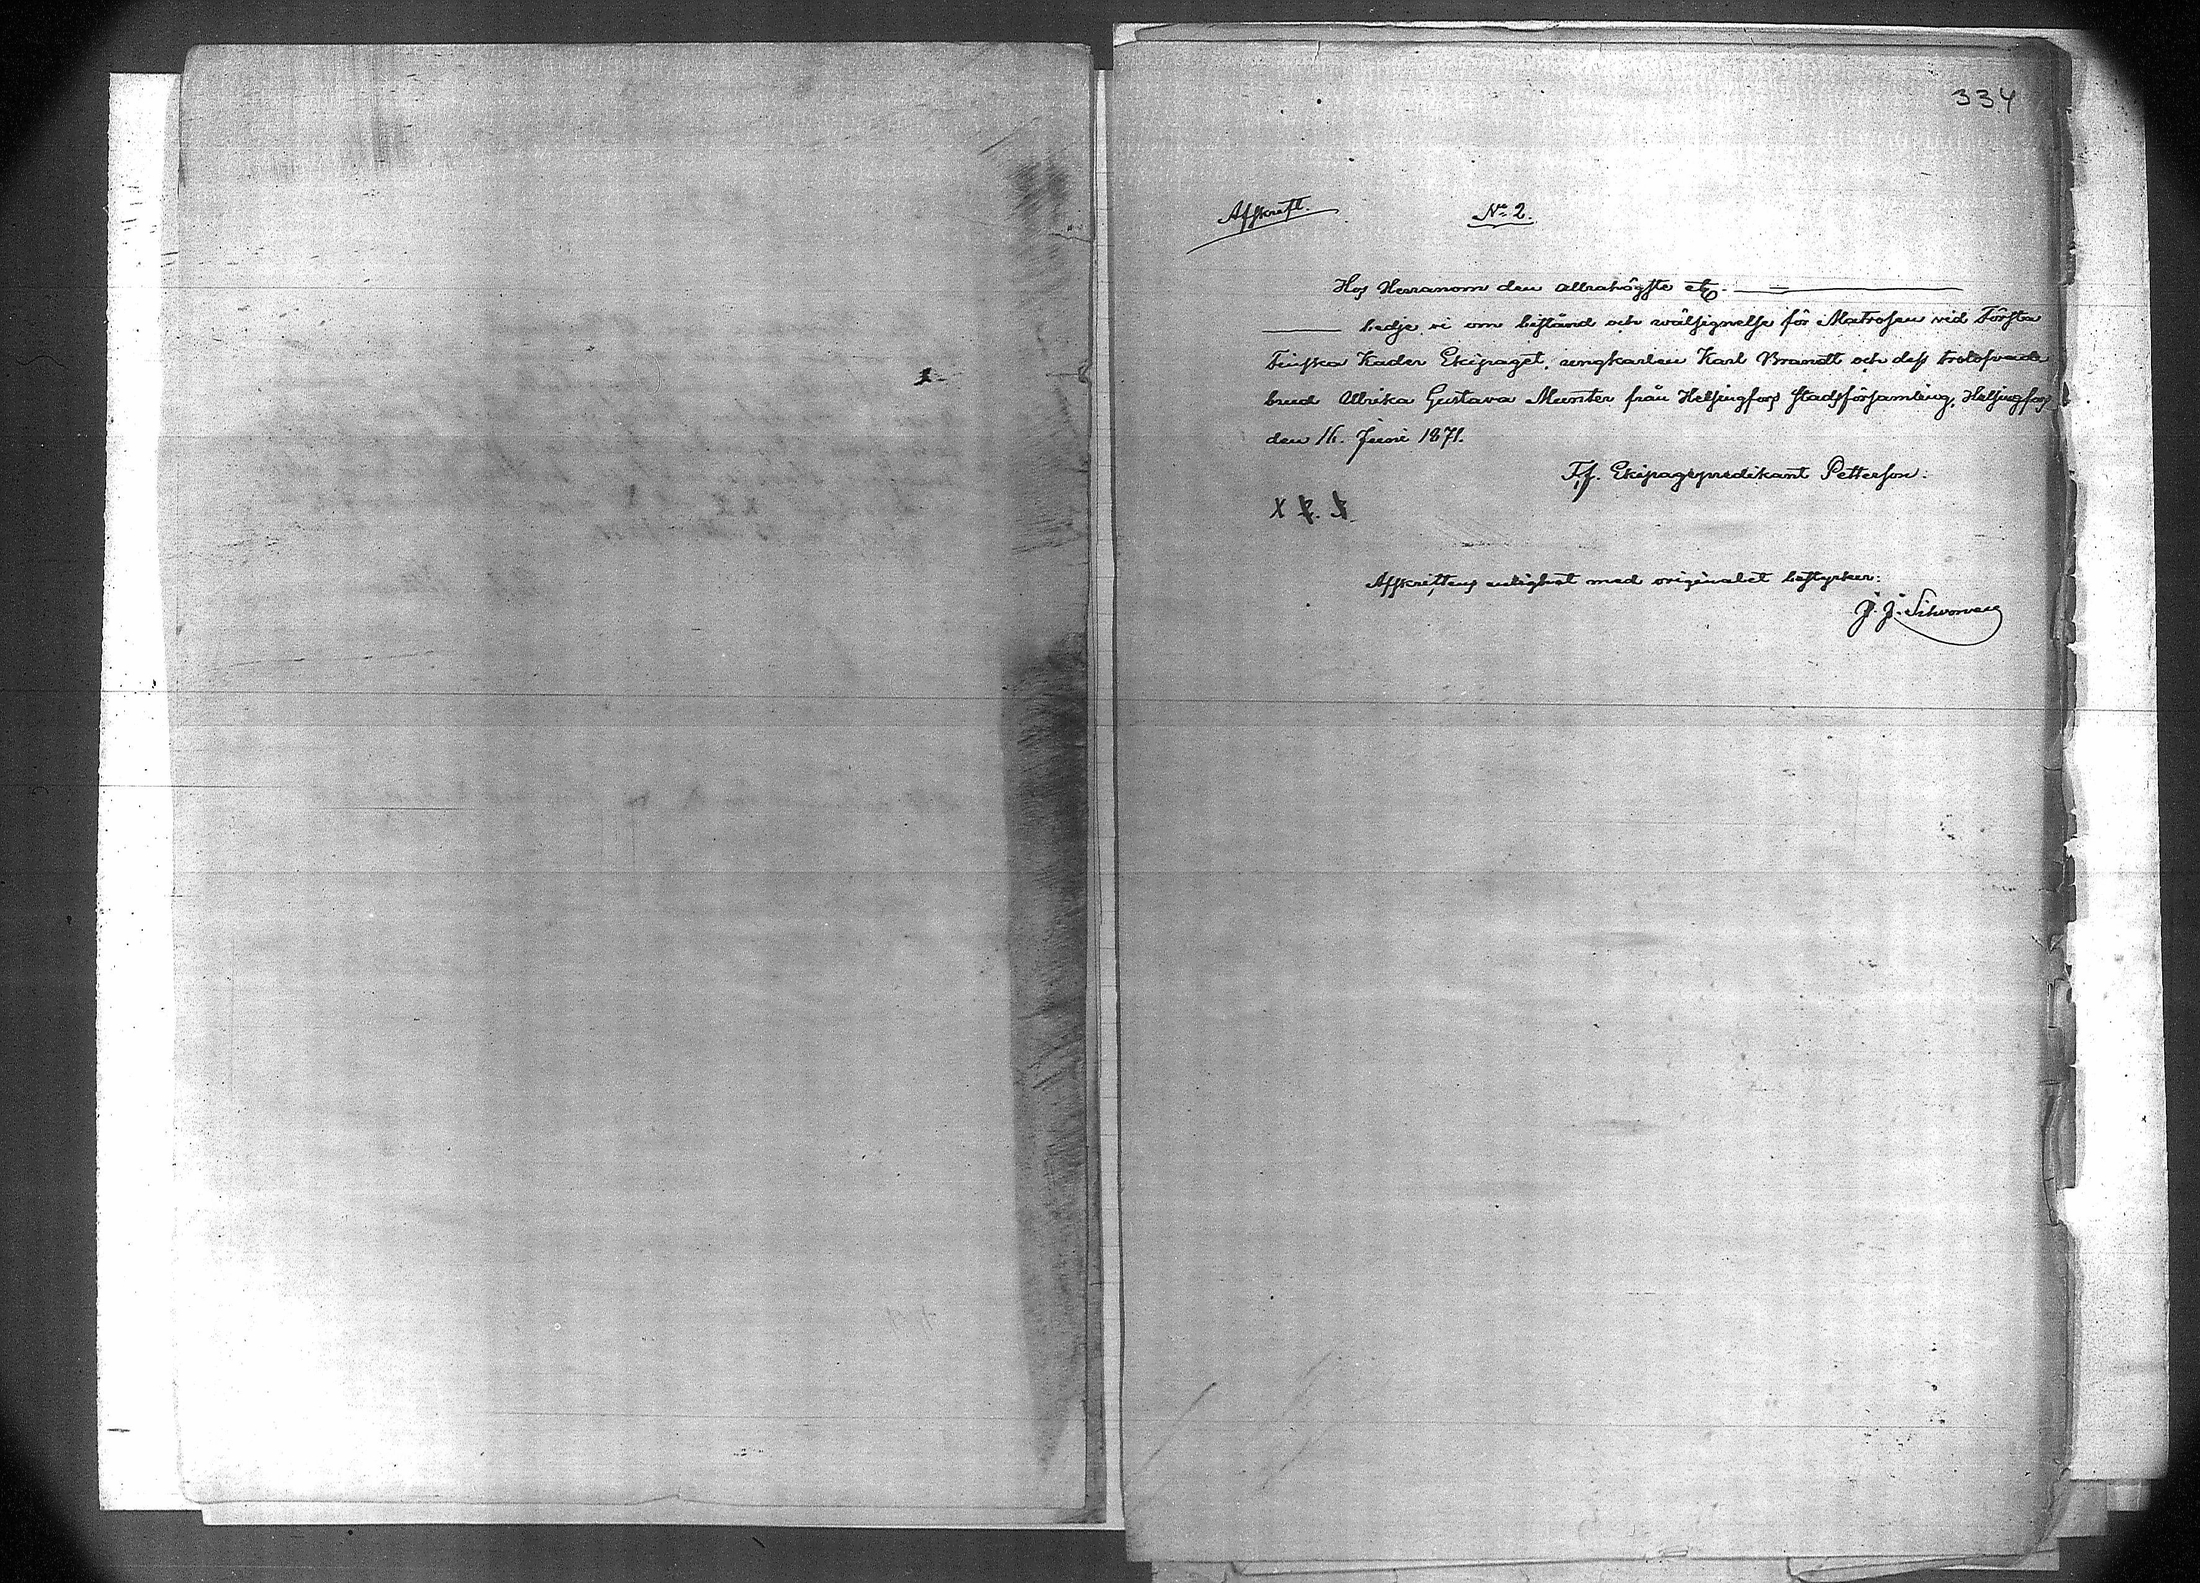 334
Afskrift. No 2.
Hos Herranom den allrahögste etc.
bedje vi om bistånd och wälsignelse för Matrosen vid Första
Finska Kader Ekipaget, ungkarlen Karl Brandt och dess trolofvade
brud Ulrika Gustava Munster från Helsingfors stadsförsamling, Helsingfors
den 16. Juni 1871.
T.f. Ekipagepredikant Petterson:
X
Afskriftens enlighet med originalet bestyrker:
J. J.